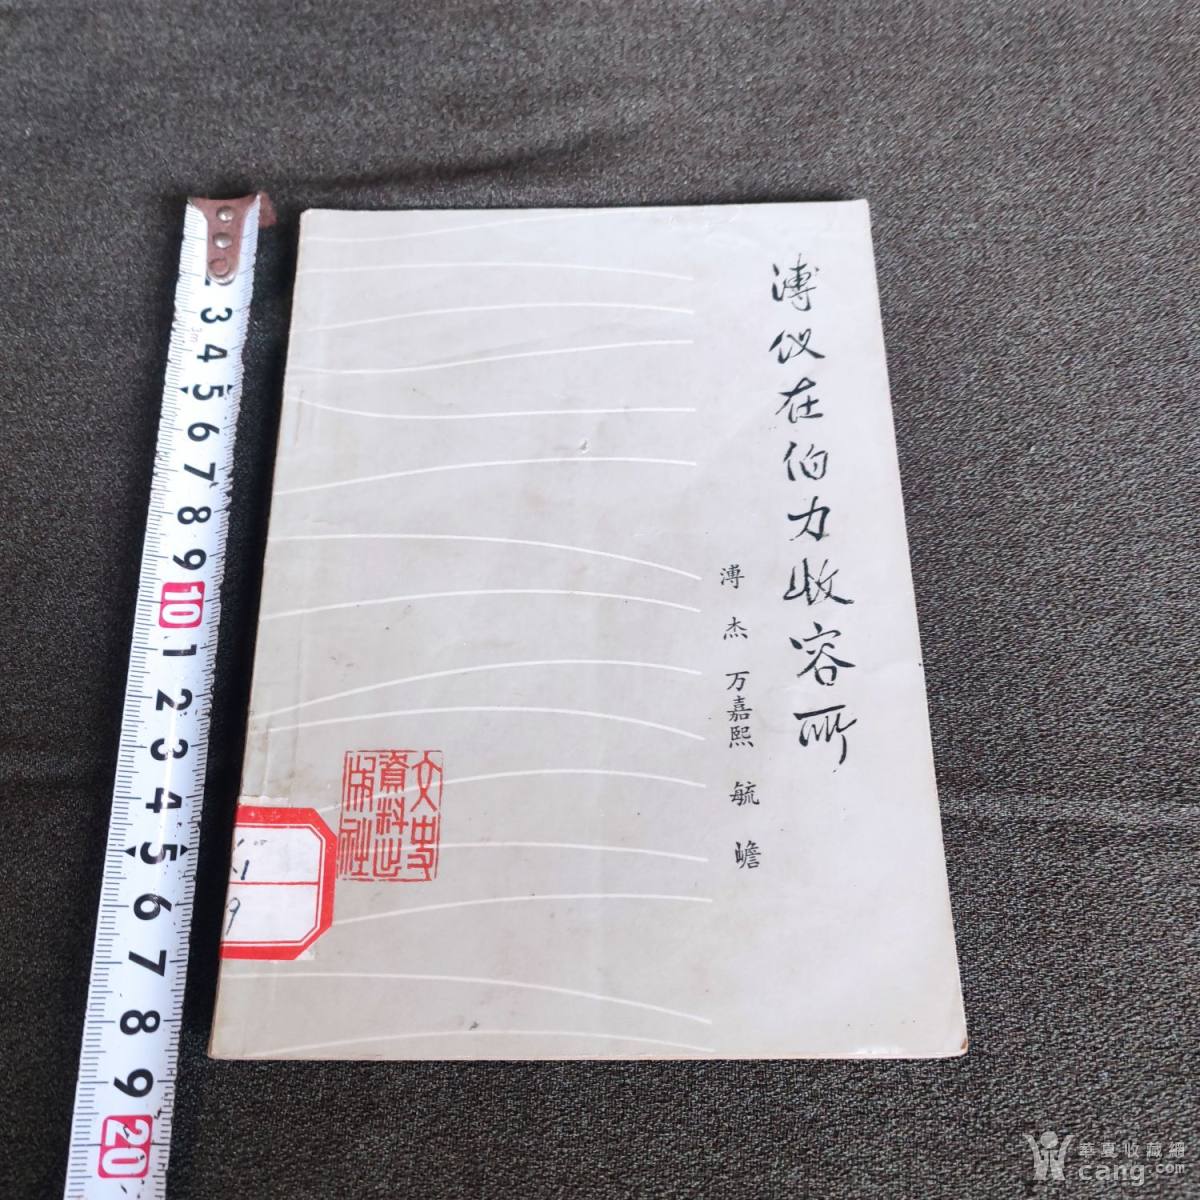 溥仪在伯力收容所
溥杰 万嘉熙 毓嶦
文史
資料出
版社
1
9
3
4
5
6
7
8
9
10
1
2
3
4
5
6
7
8
9
20
華夏收藏網
cang.com